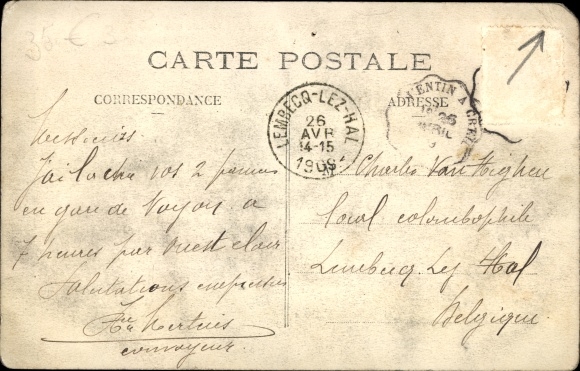 35 € 3
CARTE POSTALE
CORRESPONDANCE
ADRESSE
LEMBECQ-LEZ-HAL
26
AVR
14-15
1909
ENTIN A CREIL
Messieurs
J'ai laché vos 2 paniers
en gare de Noyon a
7 heures par vent clair
Salutations empressées
convoyeur
Charles Van
local colombophile
Lembecq Lez Hal
Belgique